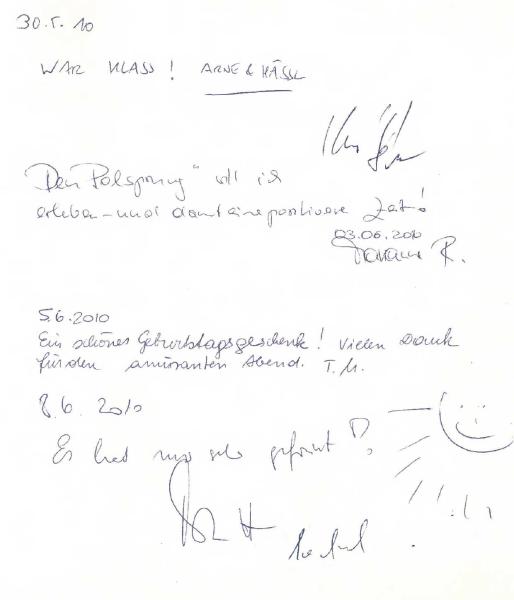 30.5.10
WAR KLASS! ARNE &
"Den Polsprung" will ich
erleben – und damit eine positivere Zeit!
03.06.2010
R.
5.6.2010
Ein schönes Geburtstagsgeschenk! Vielen Dank
für den amüsanten Abend. T. M.
8.6.2010
Es hat mir sehr